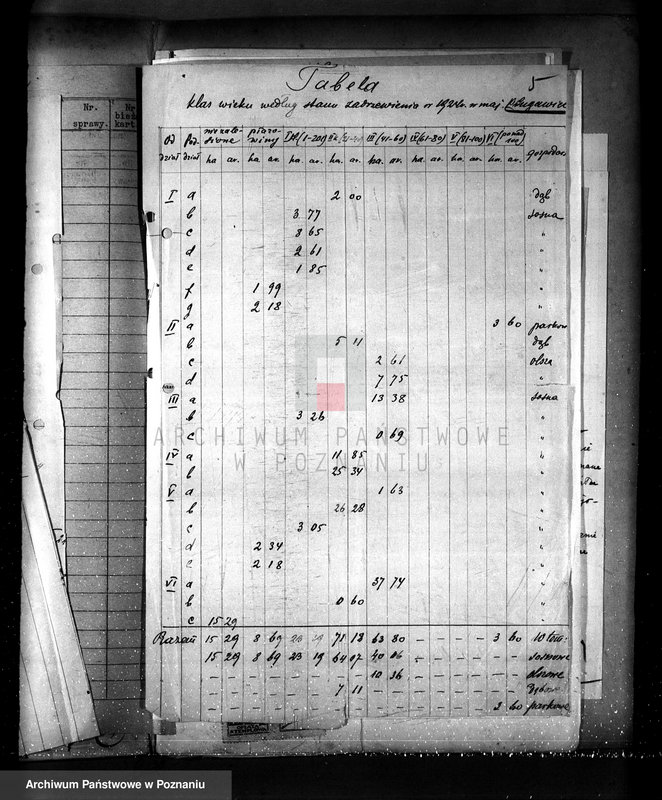 Nr. sprawy.
Nr. bież kart
5
Tabela
klas wieku według stanu zadrzewienia w 1924r. w maj.
Od dział Pod dział niezale- sione ha. ar. płazo- winy ha. ar. I (1-20) ha. ar. II (21-40) ha. ar. III (41-60) ha. ar. IV (61-80) ha. ar. V (81-100) ha. ar. VI (ponad 100) ha. ar. gospodar
I a 2 00 dąb
b 3 77 sosna
c 8 65 "
d 2 61 "
e 1 85 "
f 1 99 "
g 2 18 "
II a 3 60 parkow
b 5 11 dąb
c 2 61 olsza
d 7 75 "
III a 13 38 sosna
b 3 26 "
c 0 69 "
ARCHIWUM PAŃSTWOWE
W POZNANIU
IV a 11 85 "
b 25 34 "
V a 1 63 "
b 26 28 "
c 3 05 "
d 2 34 "
e 2 18 "
VI a 37 74 "
b 0 60 "
c 15 29 "
Razem 15 29 8 69 23 19 71 18 63 80 - - - - 3 60
15 29 8 69 23 19 64 07 40 06 - - - - - - sosnowe
- - - - - - - - 10 36 - - - - - - olszowe
- - - - - - 7 11 - - - - - - - - dębowe
- - - - - - - - - - - - - - 3 60 parkowe
Archiwum Państwowe w Poznaniu